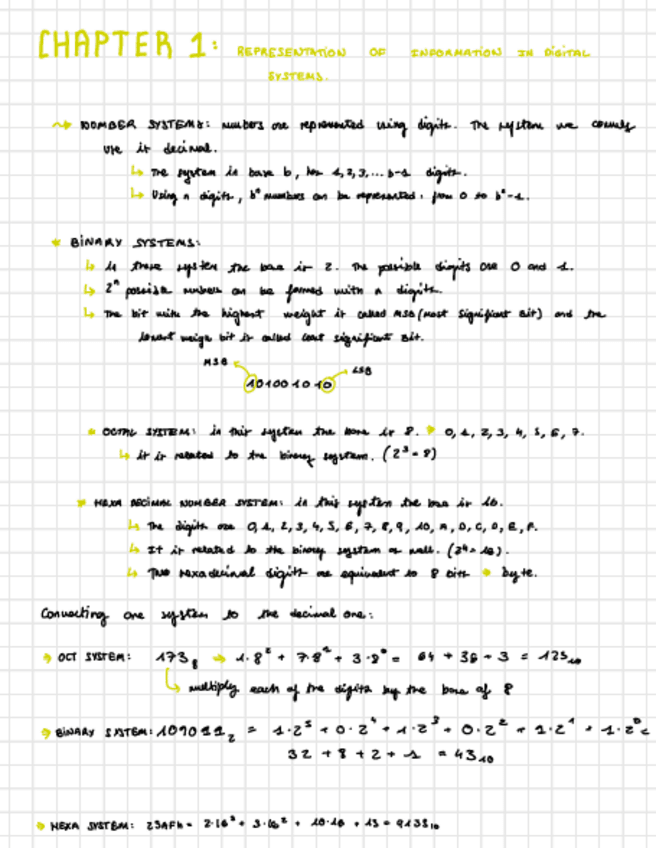 CHAPTER 1: REPRESENTATION OF INFORMATION IN DIGITAL
SYSTEMS.
NUMBER SYSTEMS: numbers are represented using digits. The system we
use is decimal.
The system in base b, has 1,2,3,... b-1 digits.
Using n digits, bⁿ numbers can be represented: from 0 to bⁿ-1.
BINARY SYSTEMS:
in these system the base is 2. The possible digits are 0 and 1.
2ⁿ possible numbers can be formed with n digits.
The bit with the highest weight is called MSB (Most Significant Bit) and the
lowest weigh bit is called least significant Bit.
MSB LSB
101001010
OCTAL SYSTEM: in this system the base is 8. 0, 1, 2, 3, 4, 5, 6, 7.
it is related to the binary system. (2³ = 8)
HEXA DECIMAL NUMBER SYSTEM: in this system the base is 16.
The digits are 0, 1, 2, 3, 4, 5, 6, 7, 8, 9, 10, A, B, C, D, E, F.
It is related to the binary system as well. (2⁴ = 16).
Two hexadecimal digits are equivalent to 8 bits byte.
Converting one system to the decimal one:
OCT SYSTEM: 173₈ → 1·8² + 7·8¹ + 3·8⁰ = 64 + 56 + 3 = 123₁₀
multiply each of the digits by the base of 8
BINARY SYSTEM: 101011₂ = 1·2⁵ + 0·2⁴ + 1·2³ + 0·2² + 1·2¹ + 1·2⁰ =
32 + 8 + 2 + 1 = 43₁₀
HEXA SYSTEM: 23AFh = 2·16³ + 3·16² + 10·16 + 15 = 9135₁₀